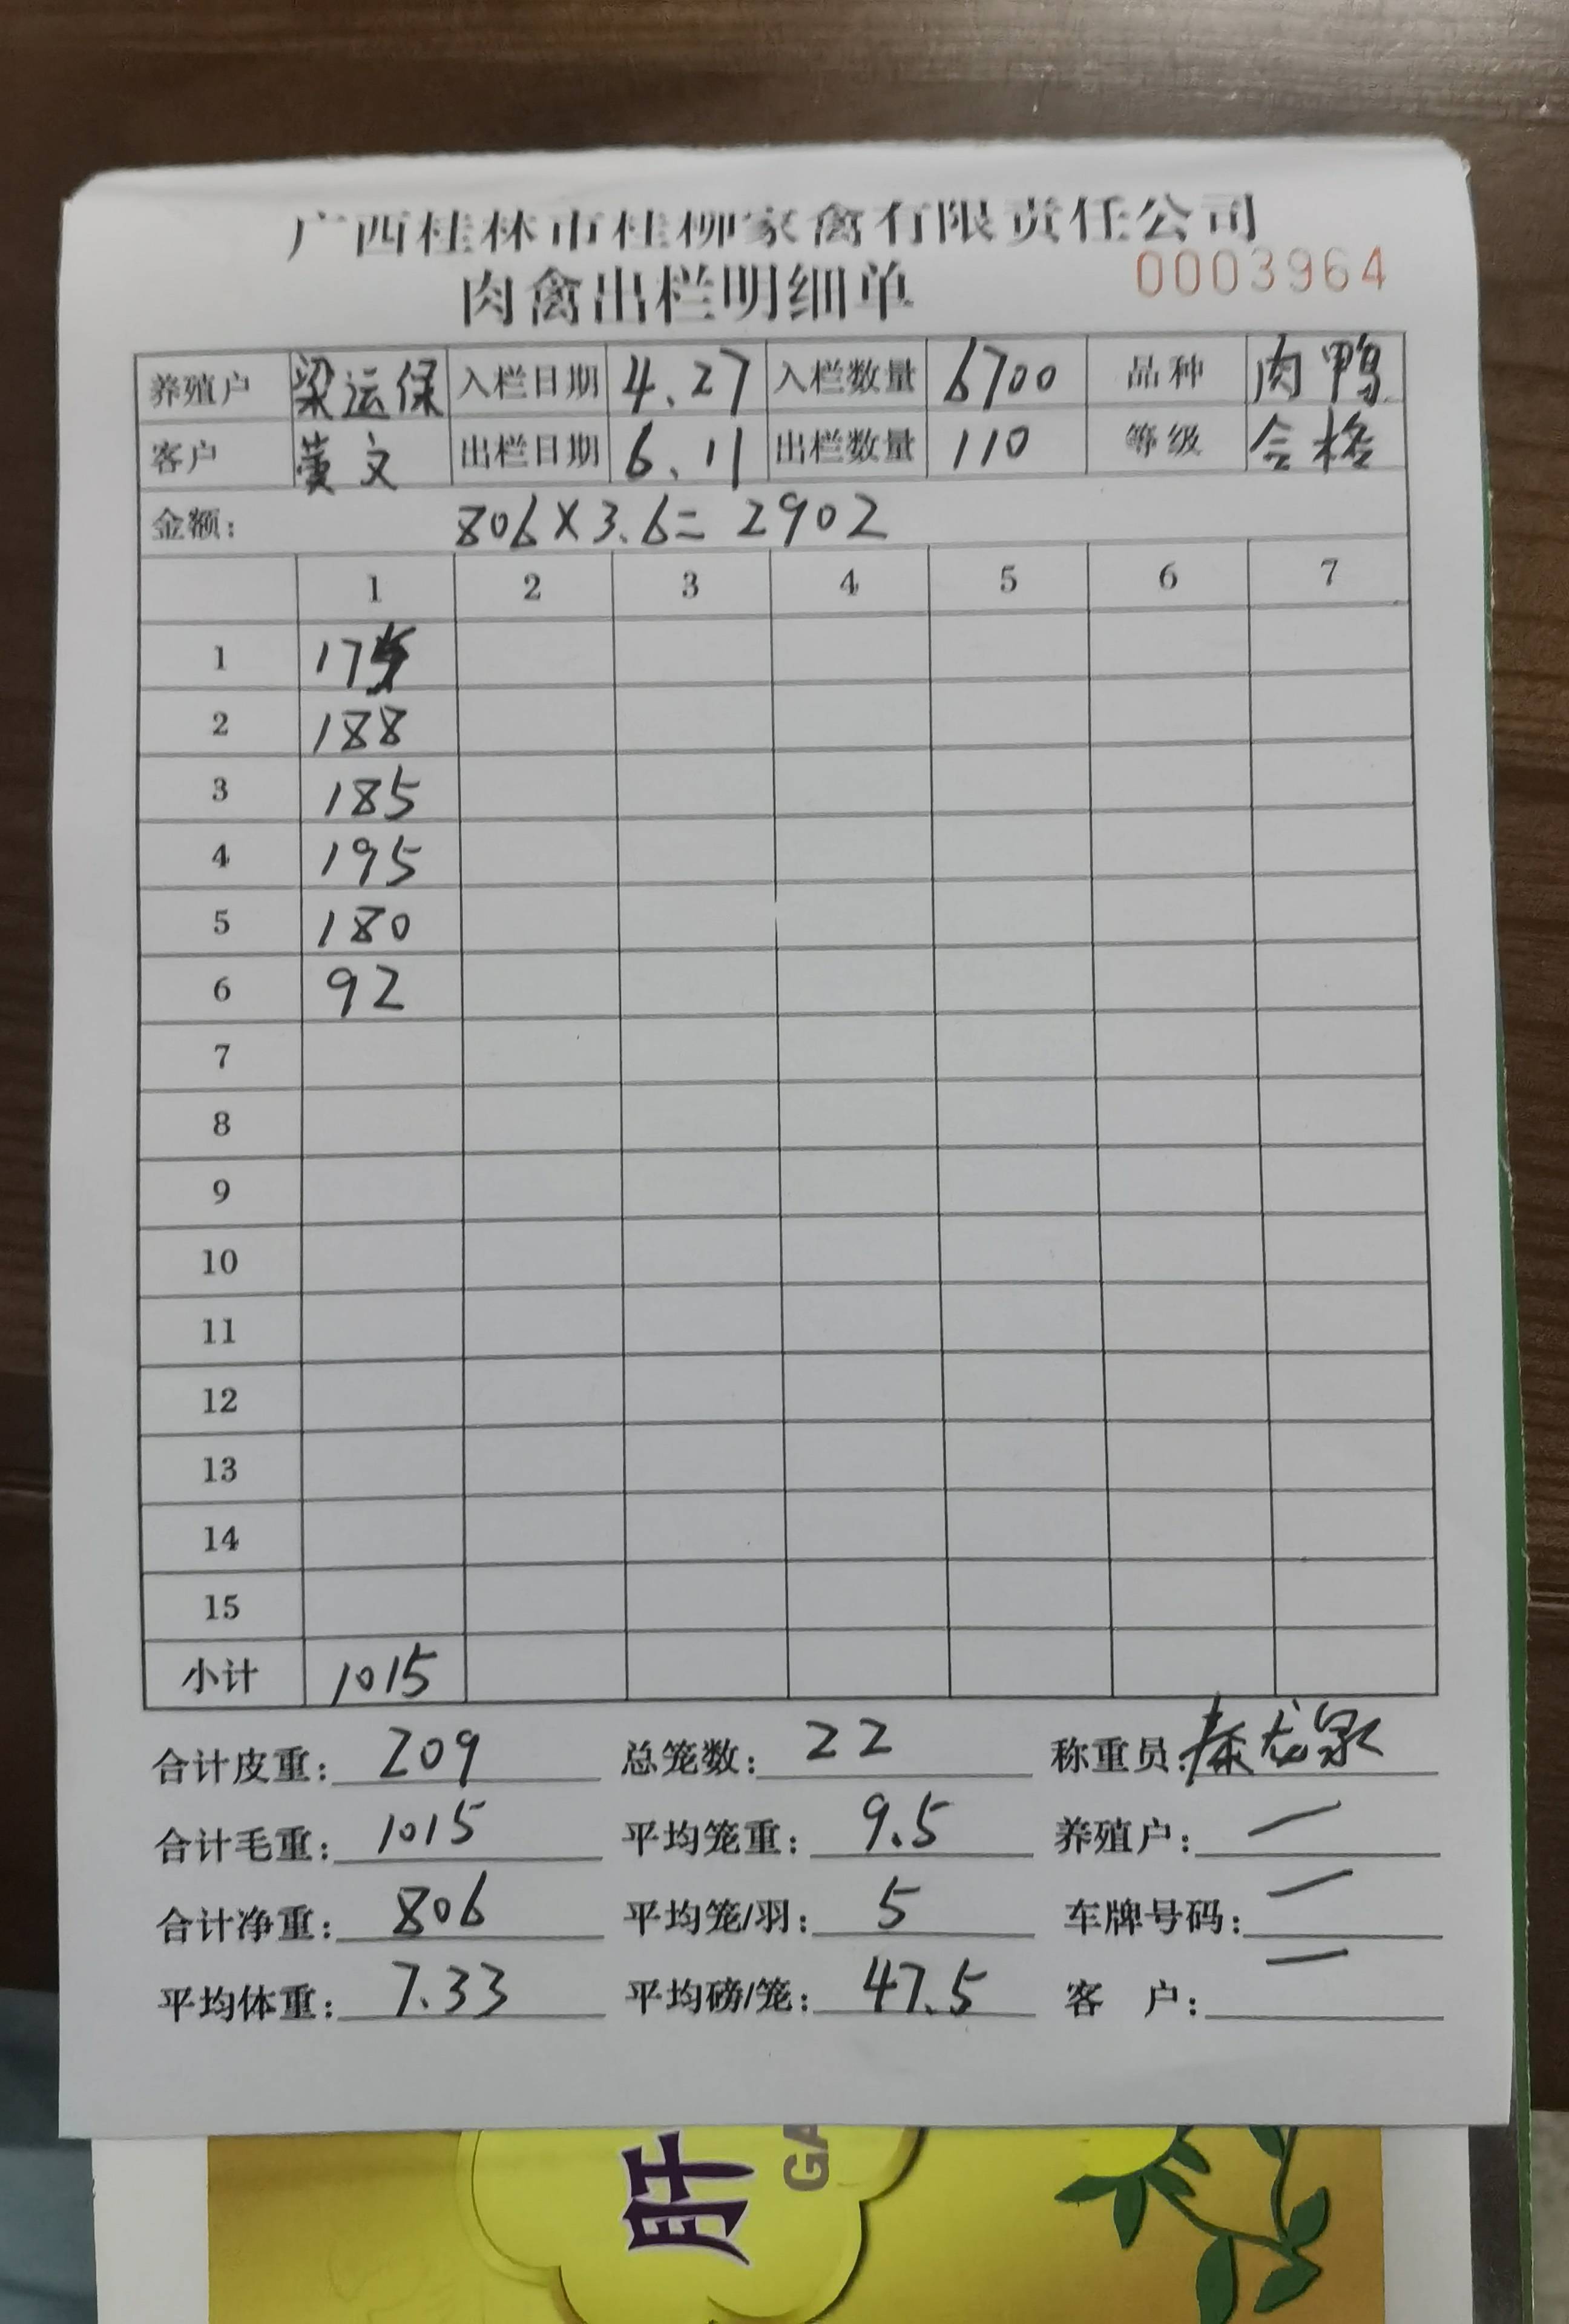 广西桂林市桂柳家禽有限责任公司
肉禽出栏明细单 0003964
养殖户 梁运保 入栏日期 4.27 入栏数量 6700 品种 肉鸭
客户 黄文 出栏日期 6.11 出栏数量 110 等级 合格
金额: 806×3.6=2902
1 2 3 4 5 6 7
1 175
2 188
3 185
4 195
5 180
6 92
7
8
9
10
11
12
13
14
15
小计 1015
合计皮重: 209 总笼数: 22 称重员: 秦龙泉
合计毛重: 1015 平均笼重: 9.5 养殖户: 一
合计净重: 806 平均笼/羽: 5 车牌号码: 一
平均体重: 7.33 平均磅/笼: 47.5 客 户: 一
肝
GA